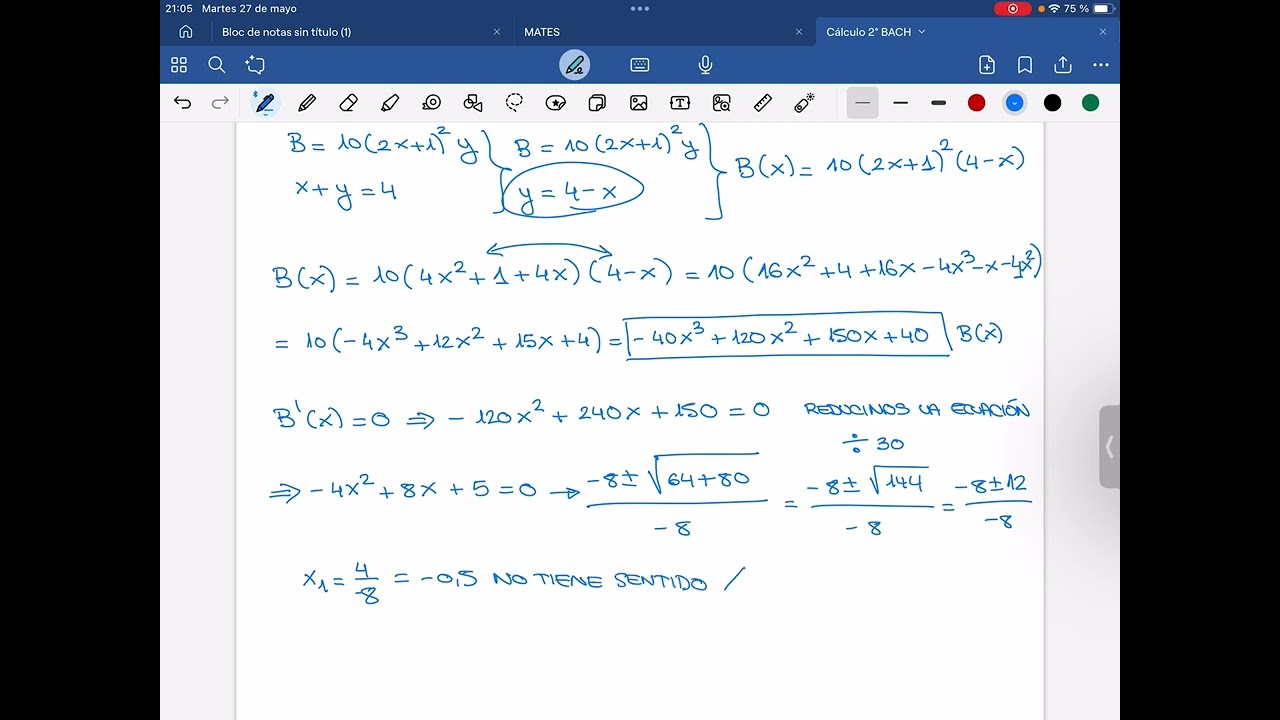 21:05 Martes 27 de mayo 75 %
Bloc de notas sin título (1) MATES Cálculo 2º BACH
B = 10(2x+1)² y B = 10(2x+1)² y B(x) = 10(2x+1)² (4-x)
x + y = 4 y = 4 - x
B(x) = 10(4x² + 1 + 4x)(4-x) = 10(16x² + 4 + 16x - 4x³ - x - 4x²)
= 10(-4x³ + 12x² + 15x + 4) = -40x³ + 120x² + 150x + 40 B(x)
B'(x) = 0 ⇒ -120x² + 240x + 150 = 0 REDUCIMOS LA ECUACIÓN
÷ 30
⇒ -4x² + 8x + 5 = 0 → (-8 ± √(64+80))/-8 = (-8 ± √144)/-8 = (-8 ± 12)/-8
x₁ = 4/-8 = -0,5 NO TIENE SENTIDO /